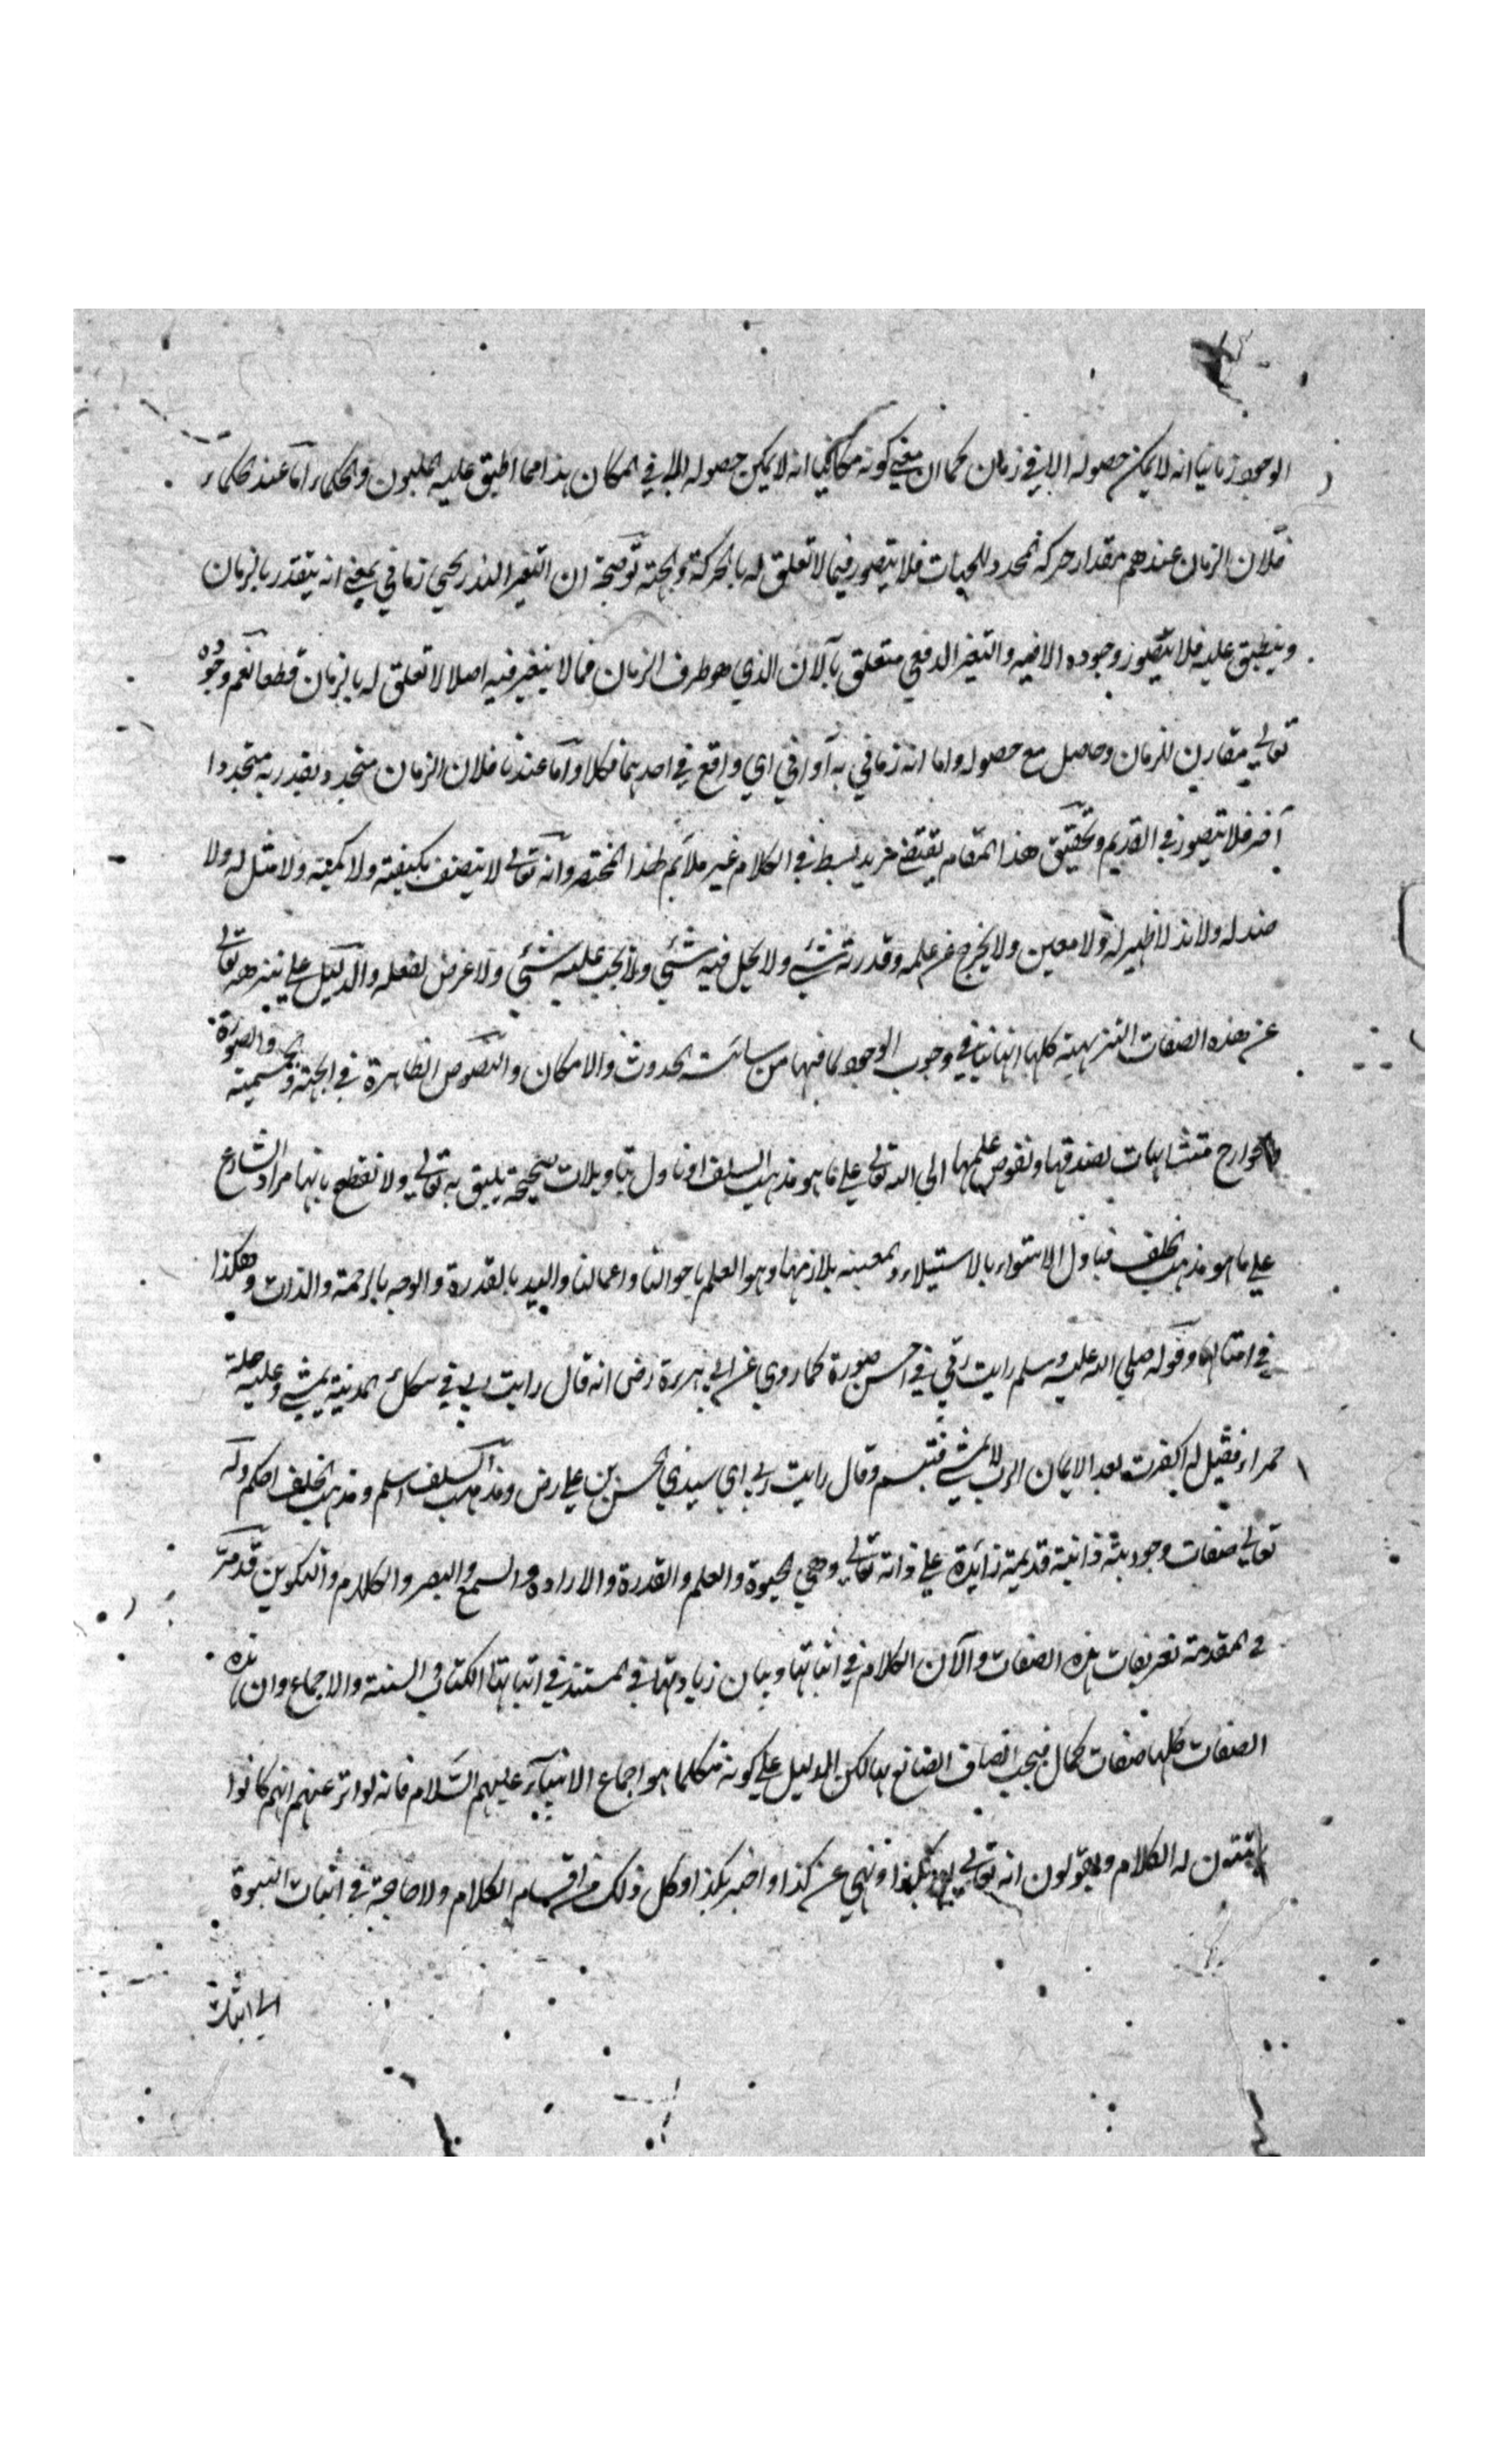 الوجود زمانيا انه لا يمكن حصوله الا في زمان كما ان معني كونه مكانيا انه لا يمكن حصوله الا في المكان هذا مما اطبق عليه المليون والحكماء اما عند الحكماء
فلان الزمان عندهم مقدار حركة المحدد للجهات فلا يتصور فيما لا تعلق له بالحركة والجهة توضيحه ان التغير التدريجي زماني بمعني انه يتقدر بالزمان
وينطبق عليه فلا يتصور وجوده الا فيه والتغير الدفعي متعلق بالآن الذي هو طرف الزمان فما لا يتغير فيه اصلا لا تعلق له بالزمان قطعا نعم وجوده
تعالي مقارن للزمان وحاصل مع حصوله واما انه زماني به آو اني اي واقع في احدهما فكلا واما عندنا فلان الزمان متجدد يقدر به متجددا
آخر فلا يتصور في القديم وتحقيق هذا المقام يقتضي مزيد بسط في الكلام غير ملائم لهذا المختصر وانه تعالي لا يتصف بكيفية ولا كمية ولا مثل له ولا
ضد له ولا ند لا ظهير له ولا معين ولا يخرج عن علمه وقدرته شيء ولا يحل فيه شيء ولا يجب عليه شيء ولا غرض لفعله والدليل علي تنزهه تعالي
عن هذه الصفات التنزيهية كلها انها تنافي وجوب الوجود لما فيها من سائبة الحدوث والامكان والنصوص الظاهرة في الجهة والجسمية والصورة
والجوارح متشابهات نصدقها ونفوض علمها الي الله تعالي علي ما هو مذهب السلف او ناول بتاويلات صحيحة يليق به تعالي ولا نقطع بانها مراد الشارع
علي ما هو مذهب الخلف فناول الاستواء بالاستيلاء والمعية بلازمها وهو العلم باحوالنا واعمالنا واليد بالقدرة والوجه بالرحمة والذات وهكذا
في امثالها وقوله صلي الله عليه وسلم رايت ربي في احسن صورة كما روي عن ابي هريرة رض انه قال رايت ربي في سكك المدينة يمشي وعليه حلة
حمراء فقيل له اكفرت بعد الايمان الرب لا يمشي فتبسم وقال رايت ربي اي سيدي الحسن بن علي رض ومذهب السلف اسلم ومذهب الخلف احكم وله
تعالي صفات وجودية ذاتية قديمة زائدة علي ذاته تعالي وهي الحيوة والعلم والقدرة والارادة والسمع والبصر والكلام والتكوين قد مر
في المقدمة تعريفات هذه الصفات والآن الكلام في اثباتها وبيان زيادتها في المستند في اثباتها الكتاب والسنة والاجماع وان هذه
الصفات كلها صفات كمال فيجب اتصاف الصانع بها لكن الدليل علي كونه متكلما هو اجماع الانبياء عليهم السلام فانه تواتر عنهم انهم كانوا
يثبتون له الكلام ويقولون انه تعالي امر بكذا ونهي عن كذا واخبر بكذا وكل ذلك من اقسام الكلام ولا حاجة في اثبات النبوة
الي اثبات